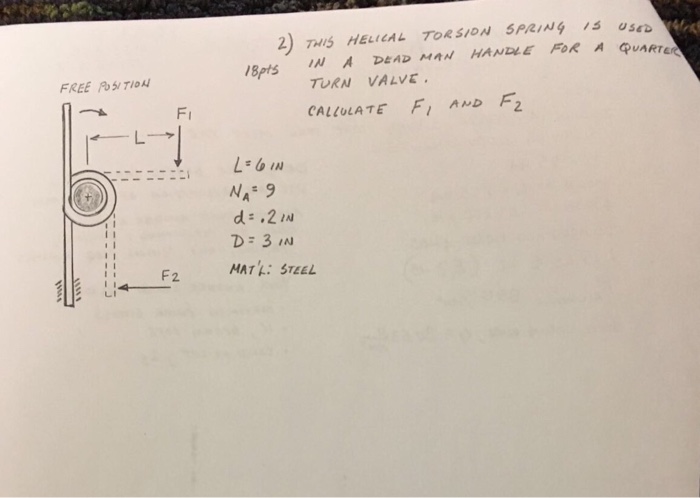 2) THIS HELICAL TORSION SPRING IS USED
18pts IN A DEAD MAN HANDLE FOR A QUARTER
TURN VALVE.
CALCULATE F1 AND F2
FREE POSITION
F1
L
L = 6 IN
NA = 9
d = .2 IN
D = 3 IN
MAT'L: STEEL
+
F2